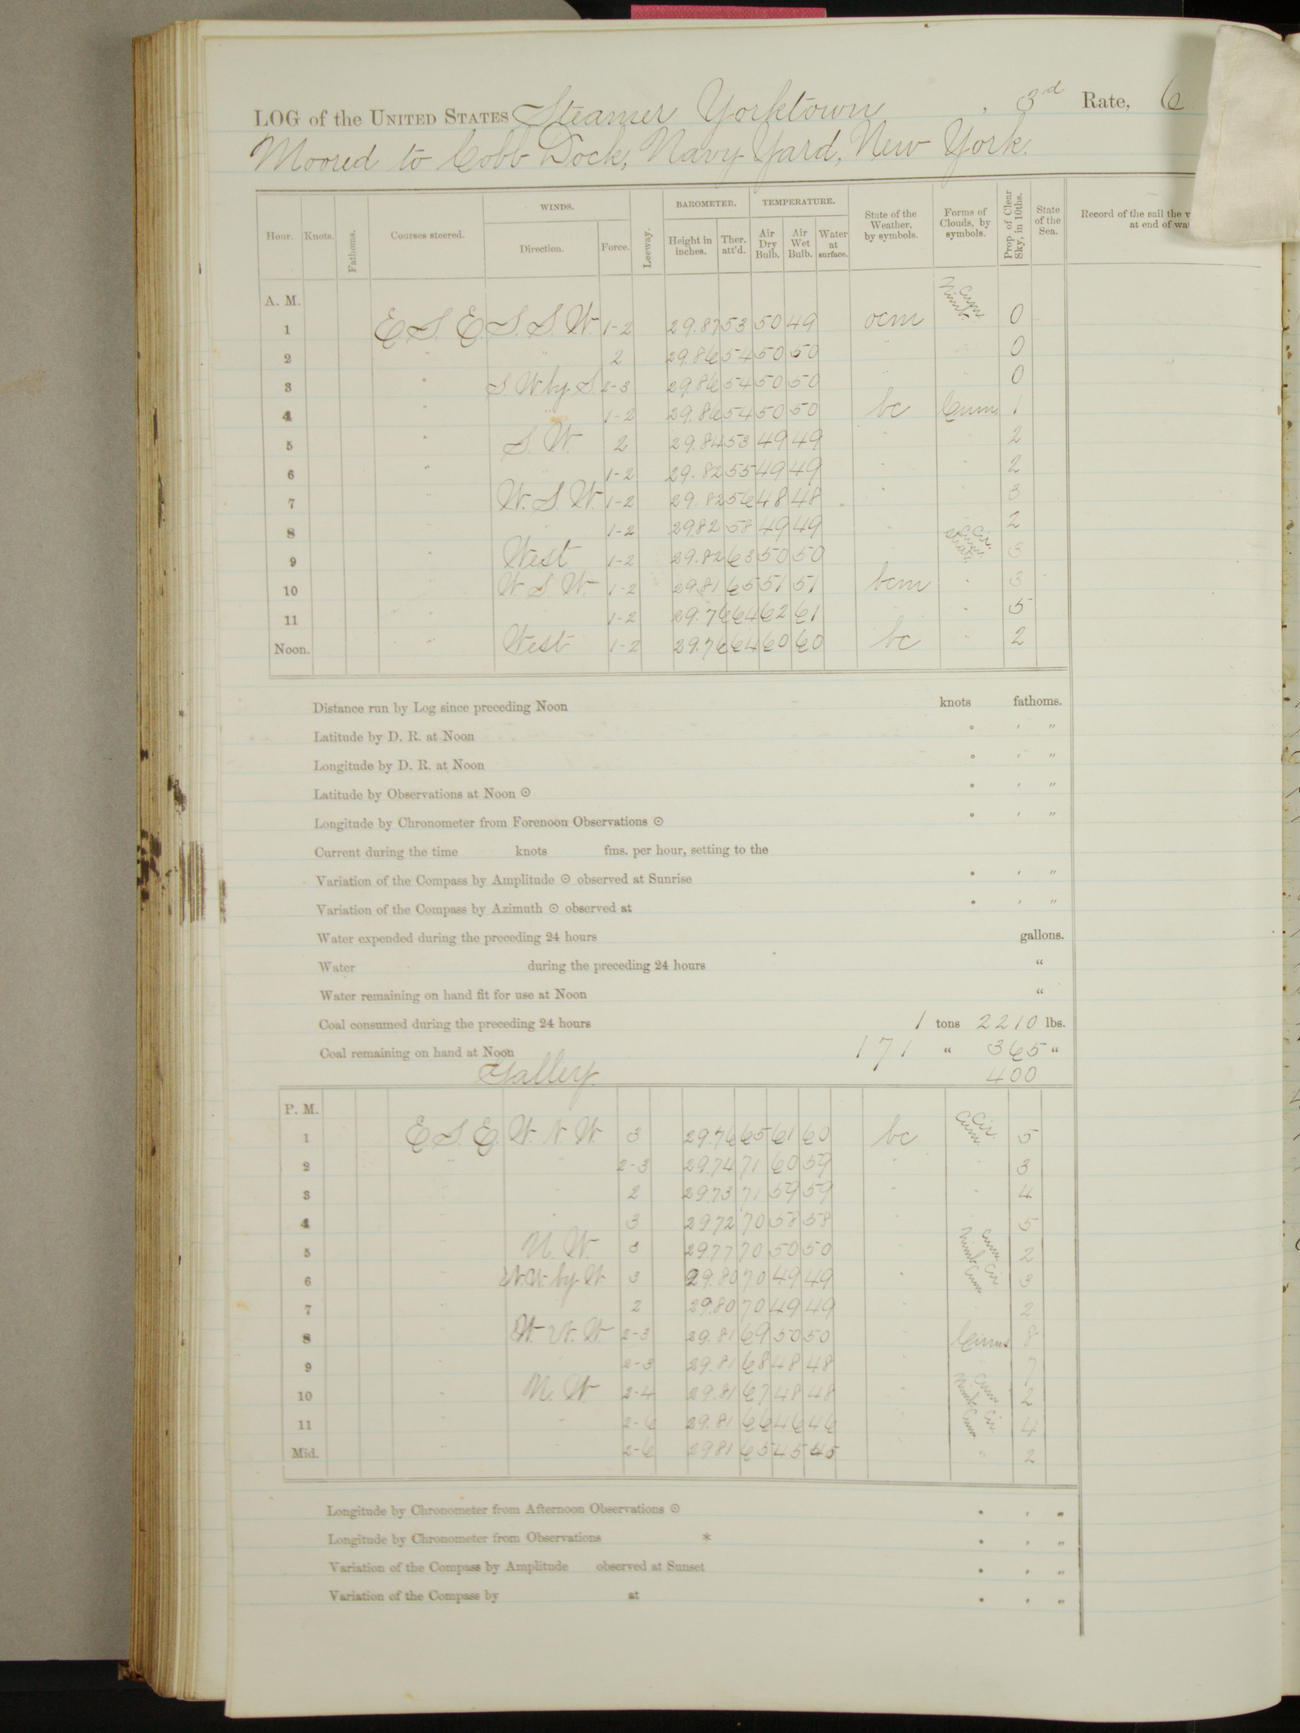 LOG of the UNITED STATES Steamer Yorktown , 3rd Rate, 6
Moored to Cobb Dock, Navy Yard, New York.
Hour. Knots. Fathoms. Courses steered. WINDS. Direction. Force. Leeway. BAROMETER. Height in inches. Ther. att'd. TEMPERATURE. Air Dry Bulb. Air Wet Bulb. Water at surface. State of the Weather, by symbols. Forms of Clouds, by symbols. Prop. of Clear Sky, in 10ths. State of the Sea. Record of the sail the v
at end of wa
A. M.
1 E S. E. S. S. W. 1-2 29.87 53 50 49 ocm Cum Nimb 0
2 " " 2 29.86 54 50 50 " " 0
3 " S. W by S. 2-3 29.86 54 50 50 " " 0
4 " " 1-2 29.86 54 50 50 bc Cum 1
5 " S. W. 2 29.84 53 49 49 " " 2
6 " " 1-2 29.82 55 49 49 " " 2
7 " W. S. W. 1-2 29.82 56 48 48 " " 3
8 " " 1-2 29 82 58 49 49 2
9 " West 1-2 29.82 63 50 50 " Cir. Cum Strat. 3
10 " W S. W. 1-2 29.81 65 51 51 bcm " 3
11 " " 1-2 29.76 64 62 61 " " 5
Noon. " West 1-2 29.76 64 60 60 bc " 2
Distance run by Log since preceding Noon knots fathoms.
Latitude by D. R. at Noon ° ' "
Longitude by D. R. at Noon ° ' "
Latitude by Observations at Noon ☉ ° ' "
Longitude by Chronometer from Forenoon Observations ☉ ° ' "
Current during the time knots fms. per hour, setting to the
Variation of the Compass by Amplitude ☉ observed at Sunrise ° ' "
Variation of the Compass by Azimuth ☉ observed at ° ' "
Water expended during the preceding 24 hours gallons.
Water during the preceding 24 hours "
Water remaining on hand fit for use at Noon "
Coal consumed during the preceding 24 hours 1 tons 2210 lbs.
Coal remaining on hand at Noon 171 " 365 "
Galley 400
P. M.
1 E. S. E. W. N W 3 29.76 65 61 60 bc Cir. Cum 5
2 " " 2-3 29.74 71 60 59 " " 3
3 " " 2 29 73 71 59 59 " " 4
4 " 3 29 72 70 58 58 " 5
5 N. W. 3 29 77 70 50 50 2
6 N. W. by W 3 29.80 70 49 49 " 3
7 2 29.80 70 49 49 " 2
8 W. N. W 2-3 29.81 69 50 50 Cum 8
9 " 2-3 29.81 68 48 48 " 7
10 " N. W. 2-4 29.81 67 48 48 " 2
11 " " 2-6 29.81 66 46 46 " 4
Mid. " " 2-6 29 81 65 45 45 " " 2
Longitude by Chronometer from Afternoon Observations ☉ ° ' "
Longitude by Chronometer from Observations * ° ' "
Variation of the Compass by Amplitude observed at Sunset ° ' "
Variation of the Compass by at ° ' "